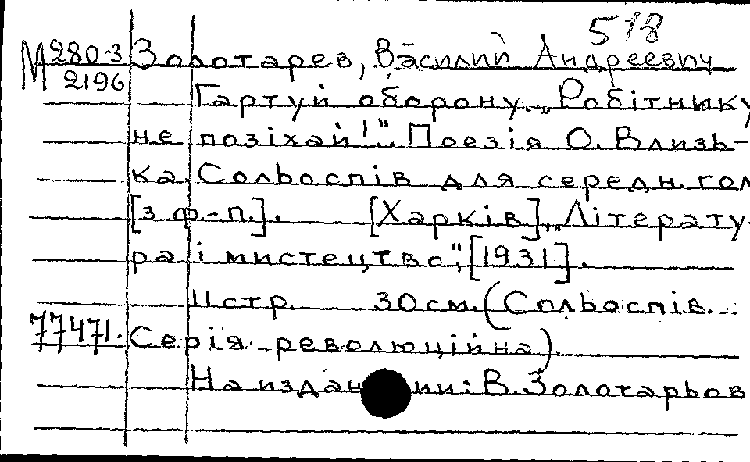 518
М 280-3
2196
Золотарев, Василий Андреевич
Гартуй оборону. „Робітнику
не позіхай!". Поезія О. Влизь-
ка. Сольоспів для середн. гол
[з ф-п.]. [Харків], „Літерату-
ра і мистецтво", [1931].
11 стр. 30 см. (Сольоспів.
77471. Серія революційна)
На издан ии: В. Золотарьов